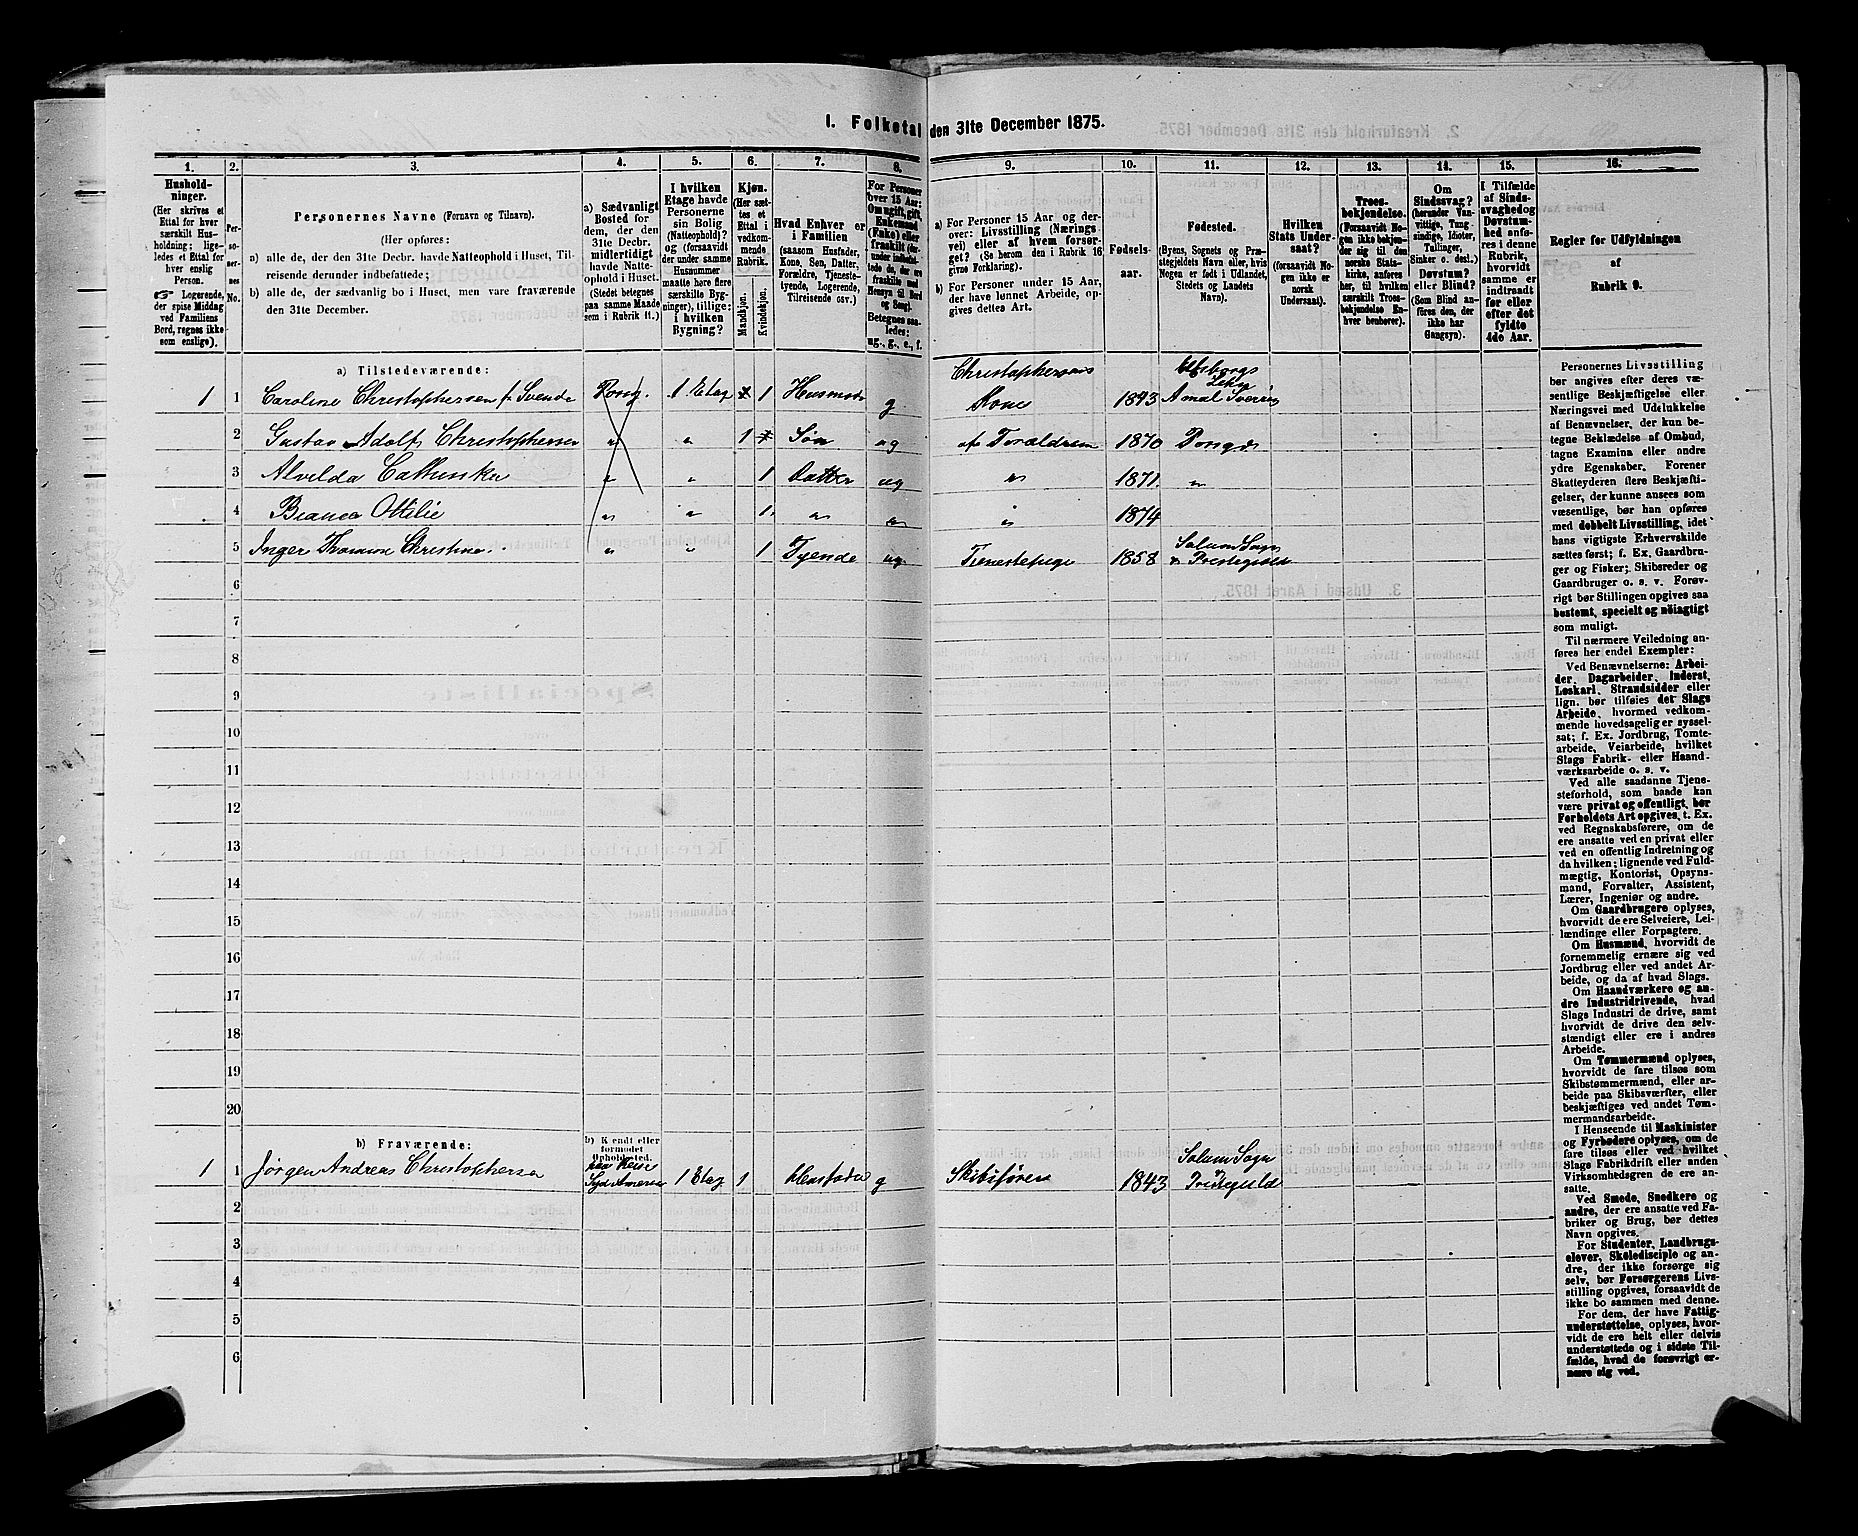 I. Folketal den 31te December 1875.
1. 2. 3. 4. 5. 6. 7. 8. 9. 10. 11. 12. 13. 14. 15. 16.
Hushold-
ninger.
(Her skrives et
Ettal for hver
særskilt Hus-
holdning; lige-
ledes et Ettal for
hver enslig
Person.
☞ Logerende,
der spise Middag
ved Familiens
Bord, regnes ikke
som enslige).
Per-
so-
ner-
nes
No.
Personernes Navne (Fornavn og Tilnavn).
(Her opføres:
a) alle de, der den 31te Decbr. havde Natteophold i Huset, Til-
reisende derunder indbefattede;
b) alle de, der sædvanlig bo i Huset, men vare fraværende
den 31te December.
a) Sædvanligt
Bosted for
dem, der den
31te Decbr.
midlertidigt
havde Natte-
ophold i Huset.
(Stedet betegnes
paa samme Maade
som i Rubrik 11.)
I hvilken
Etage havde
Personerne
sin Bolig
(Natteophold)?
og (forsaavidt
der under samme
Husnummer
maatte høre flere
særskilte Byg-
ninger), tillige:
i hvilken
Bygning?
Kjøn.
(Her sæt-
tes et
Ettal i
vedkom-
mende
Rubrik.
Mandkjøn.
Kvindekjøn.
Hvad Enhver er
i Familien
(saasom Husfader,
Kone, Søn, Datter,
Forældre, Tjeneste-
tyende, Logerende,
Tilreisende osv.)
For Personer
over 15 Aar:
Om ugift, gift,
Enkemand
(Enke) eller
fraskilt
Betegnes saa-
ledes:
ug., g., e., f.
a) For Personer 15 Aar og der-
over: Livsstilling (Nærings-
vei) eller af hvem forsør-
get? (Se herom den i Rubrik 16
givne Forklaring).
b) For Personer under 15 Aar,
der have lønnet Arbeide, op-
gives dettes Art.
Fødsels-
aar.
Fødested.
(Byens, Sognets og Præ-
stegjeldets Navn eller, hvis
Nogen er født i Udlandet,
Stedets og Landets
Navn).
Hvilken
Stats Under-
saat?
(forsaavidt No-
gen ikke er
norsk
Undersaat).
Troes-
bekjendelse.
(Forsaavidt No-
gen ikke bekjen-
der sig til den
norske Stats-
kirke, anføres
her, til hvilken
særskilt Troes-
bekjendelse En-
hver henhører).
Om
Sindssvag?
(herunder Van-
vittige, Tung-
sindige, Idioter,
Tullinger,
Sinker o. desl.)
Døvstum?
eller Blind?
(Som Blind an-
føres den, der
ikke har
Gangsyn).
I Tilfælde
af Sinds-
svaghed og
Døvstum-
hed anfø-
res i denne
Rubrik,
hvorvidt
samme er
indtraadt
før eller
efter det
fyldte
4de Aar.
Regler for Udfyldningen
af
Rubrik 9.
a) Tilstedeværende:
Christophersens
1 1 Caroline Christophersen f. Svends Porsg. 1 Etag 1 Husmod. g Kone 1843 Amal Sverig
2 Gustav Adolf Christophersen " " 1 Søn ug af Forældrene 1870 Porsgr.
3 Alvilda Cathinka " " 1 Datter ug " 1871 "
4 Bianca Ottilie " " 1 " " " 1874
5 Inger Thomine Christine " " 1 Tyende ug Tjenestepige 1858 Solum Sogn
& Prestegjeld
6
7
8
9
10
11
12
13
14
15
16
17
18
19
20
b) Fraværende:
b) Kendt eller
formodet
Opholdssted.
1 1 Jørgen Andreas Christophersen paa Reise
Syd Amerika 1 Etag 1 Husfader g Skibsfører 1843 Solum Sogn
& Prestegjeld
2
3
4
5
6
Personernes Livsstilling
bør angives efter deres væ-
sentlige Beskjæftigelse eller
Næringsvei med Udelukkelse
af Benævnelser, der kun be-
tegne Beklædelse af Ombud,
tagne Examina eller andre
ydre Egenskaber. Forener
Skatteyderen flere Beskjæfti-
gelser, der kunne ansees som
væsentlige, bør han opføres
med dobbelt Livsstilling, idet
hans vigtigste Erhvervskilde
sættes først; f. Ex. Gaardbru-
ger og Fisker; Skibsreder og
Gaardbruger o. s. v. Forøv-
rigt bør Stillingen opgives saa
bestemt, specielt og nøiagtigt
som muligt.
Til nærmere Veiledning an-
føres her endel Exempler:
Ved Benævnelserne: Arbei-
der, Dagarbeider, Inderst,
Løskarl, Strandsidder eller
lign. bør tilføies det Slags
Arbeide, hvormed vedkom-
mende hovedsagelig er syssel-
sat; f. Ex. Jordbrug, Tomte-
arbeide, Veiarbeide, hvilket
Slags Fabrik- eller Haand-
værksarbeide o. s. v.
Ved alle saadanne Tjene-
steforhold, som baade kan
være privat og offentligt, bør
Forholdets Art opgives, t. Ex.
ved Regnskabsførere, om de
ere ansatte ved en privat eller
ved en offentlig Indretning og
da hvilken; lignende ved Fuld-
mægtig, Kontorist, Opsyns-
mand, Forvalter, Assistent,
Lærer, Ingeniør og andre.
Om Gaardbrugere oplyses,
hvorvidt de ere Selveiere, Lei-
lændinge eller Forpagtere.
Om Husmænd, hvorvidt de
fornemmelig ernære sig ved
Jordbrug eller ved andet Ar-
beide, og da af hvad Slags.
Om Haandværkere og an-
dre Industridrivende, hvad
Slags Industri de drive, samt
hvorvidt de drive den selv-
stændigt eller ere i andres
Arbeide.
Om Tømmermænd oplyses,
hvorvidt de fare tilsøs som
Skibstømmermænd, eller ar-
beide paa Skibsværfter, eller
beskjæftiges ved andet Tøm-
mermandsarbeide.
I Henseende til Maskinister
og Fyrbødere oplyses, om de
fare tilsøs eller ved hvilket
Slags Fabrikdrift eller anden
Virksomhedsgren de ere an-
satte.
Ved Smede, Snedkere og
andre, der ere ansatte ved Fa-
briker og Brug, bør dettes
Navn opgives.
For Studenter, Landbrugs-
elever, Skoledisciple og an-
dre, der ikke forsørge sig
selv, bør Forsørgerens Livs-
stilling opgives, forsaavidt de
ikke bo sammen med denne.
For dem, der have Fattig-
understøttelse, oplyses, hvor-
vidt de ere helt eller delvis
understøttede og i sidste Til-
fælde, hvad de forøvrigt er-
nære sig ved.